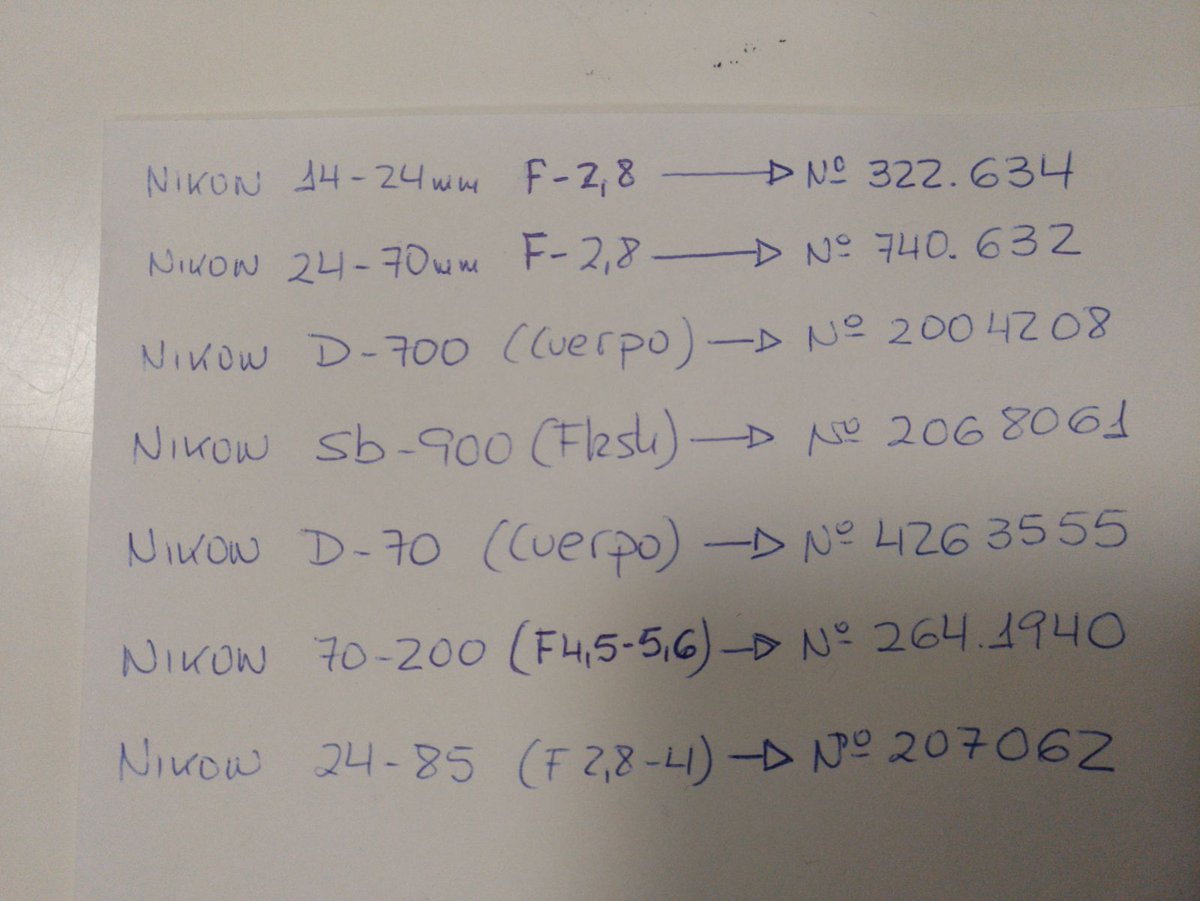 NIKON 14-24mm F-2,8 → Nº 322.634
NIKON 24-70mm F-2,8 → Nº 740.632
NIKON D-700 (Cuerpo) → Nº 2004208
NIKON Sb-900 (Flash) → Nº 2068061
NIKON D-70 (Cuerpo) → Nº 4263555
NIKON 70-200 (F4,5-5,6) → Nº 264.1940
NIKON 24-85 (F 2,8-4) → Nº 207062